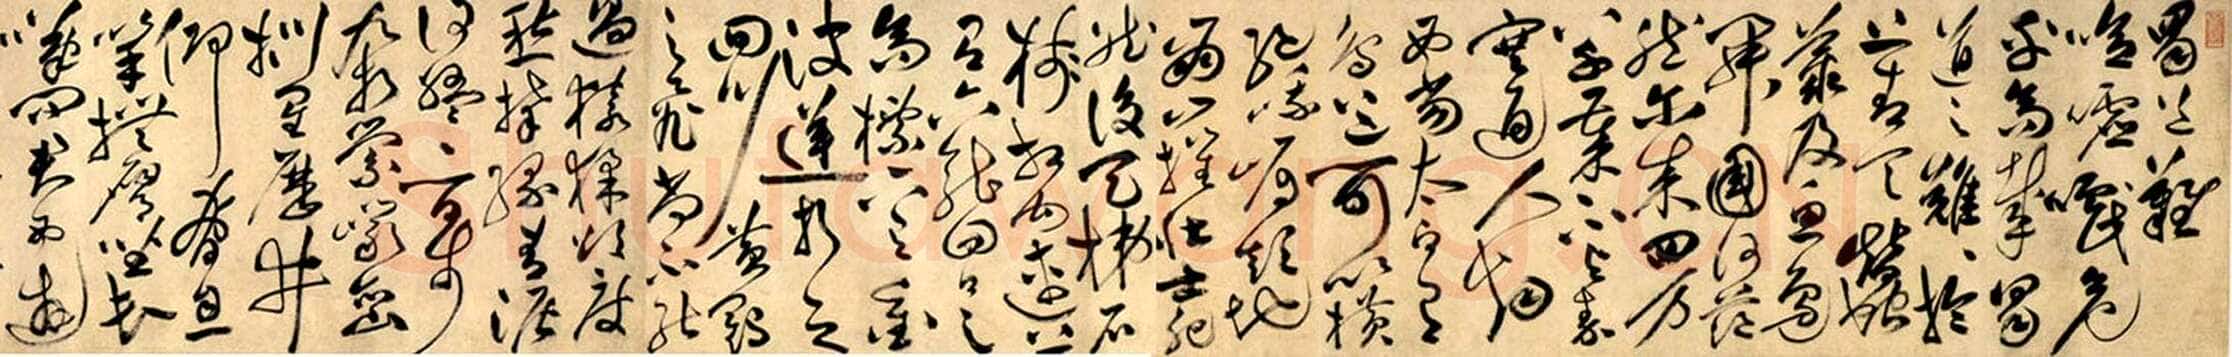 蜀道難
噫嘘嚱危
乎高哉蜀
道之難難於
上青天蠶
叢及魚鳧
開國何茫
然尔来四万
八千歲不與秦
塞通人烟
西當太白有
鳥道可以横
絶峨嵋巔地
崩山摧壮士死
然後天梯石
棧相鈎連上
有六龍回日之
高標下有衝
波逆折之
回川黄鶴
之飛尚不能
過猨猱欲度
愁攀緣青泥
何盤盤百步
九折縈巖巒
捫星歷井
仰脅息
以手撫膺坐長
嘆問君西遊
shufawang.CN